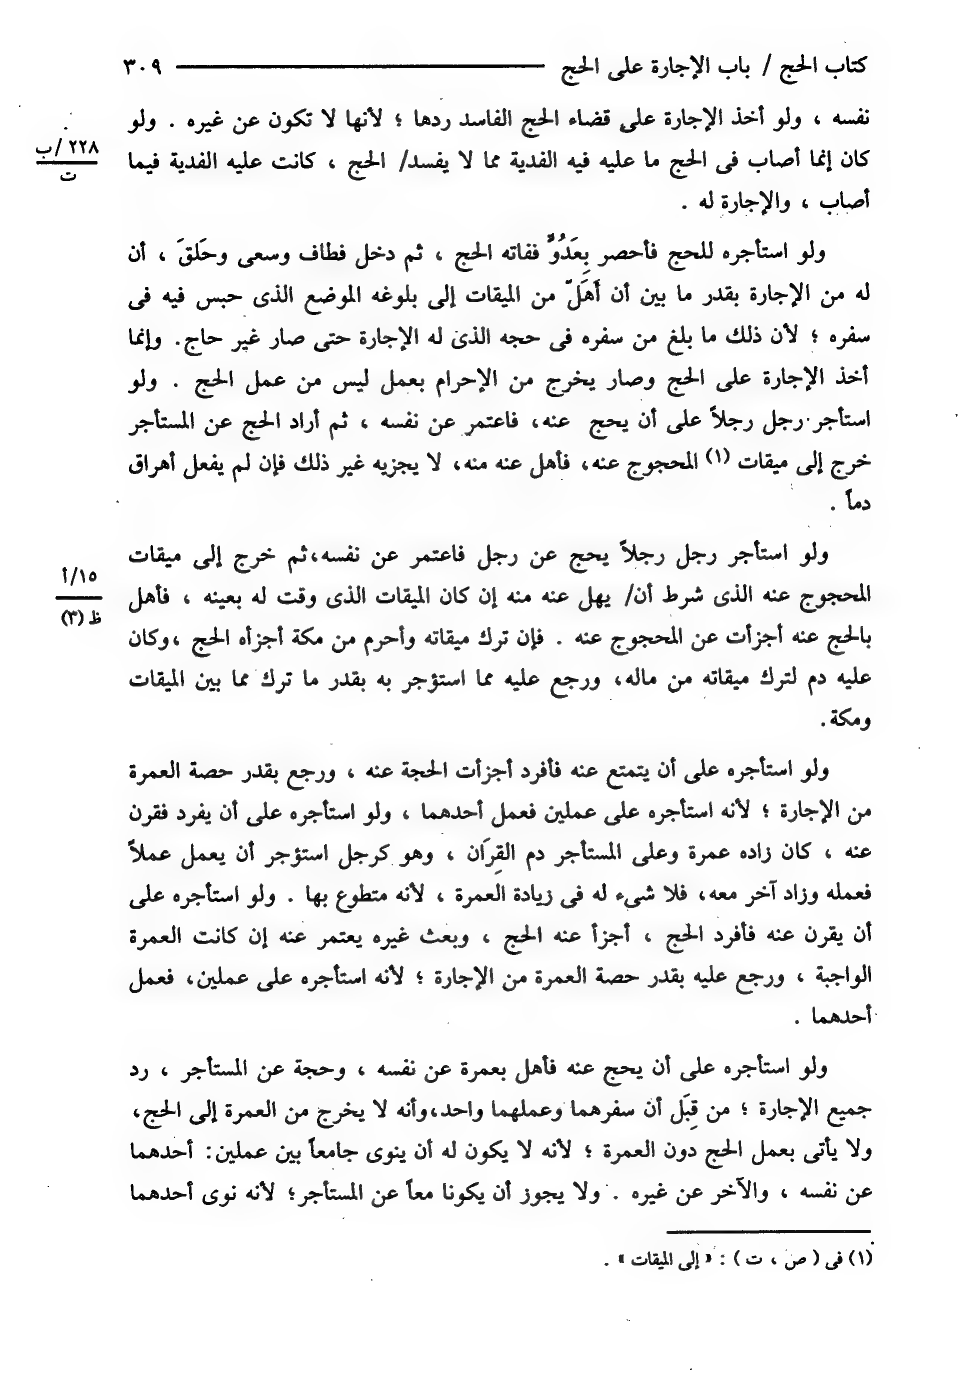 كتاب الحج / باب الإجارة على الحج ــــــــــــــــــــ ٣٠٩
نفسه ، ولو أخذ الإجارة على قضاء الحج الفاسد ردها ؛ لأنها لا تكون عن غيره . ولو
كان إنما أصاب فى الحج ما عليه فيه الفدية مما لا يفسد/ الحج ، كانت عليه الفدية فيما
٢٢٨/ب
ت
أصاب ، والإجارة له .
ولو استأجره للحج فأحصر بِعَدُوٍّ ففاته الحج ، ثم دخل فطاف وسعى وحَلقَ ، أن
له من الإجارة بقدر ما بين أن أَهَلّ من الميقات إلى بلوغه الموضع الذى حبس فيه فى
سفره ؛ لأن ذلك ما بلغ من سفره فى حجه الذى له الإجارة حتى صار غير حاج. وإنما
أخذ الإجارة على الحج وصار يخرج من الإحرام بعمل ليس من عمل الحج . ولو
استأجر رجل رجلاً على أن يحج عنه، فاعتمر عن نفسه ، ثم أراد الحج عن المستأجر
خرج إلى ميقات (١) المحجوج عنه، فأهل عنه منه، لا يجزيه غير ذلك فإن لم يفعل أهراق
دماً .
ولو استأجر رجل رجلاً يحج عن رجل فاعتمر عن نفسه،ثم خرج إلى ميقات
المحجوج عنه الذى شرط أن/ يهل عنه منه إن كان الميقات الذى وقت له بعينه ، فأهل
١٥/أ
ظ (٣)
بالحج عنه أجزأت عن المحجوج عنه . فإن ترك ميقاته وأحرم من مكة أجزأه الحج ،وكان
عليه دم لترك ميقاته من ماله، ورجع عليه مما استؤجر به بقدر ما ترك مما بين الميقات
ومكة.
ولو استأجره على أن يتمتع عنه فأفرد أجزأت الحجة عنه ، ورجع بقدر حصة العمرة
من الإجارة ؛ لأنه استأجره على عملين فعمل أحدهما ، ولو استأجره على أن يفرد فقرن
عنه ، كان زاده عمرة وعلى المستأجر دم القِرَان ، وهو كرجل استؤجر أن يعمل عملاً
فعمله وزاد آخر معه، فلا شىء له فى زيادة العمرة ، لأنه متطوع بها . ولو استأجره على
أن يقرن عنه فأفرد الحج ، أجزأ عنه الحج ، وبعث غيره يعتمر عنه إن كانت العمرة
الواجبة ، ورجع عليه بقدر حصة العمرة من الإجارة ؛ لأنه استأجره على عملين، فعمل
أحدهما .
ولو استأجره على أن يحج عنه فأهل بعمرة عن نفسه ، وحجة عن المستأجر ، رد
جميع الإجارة ؛ من قِبَل أن سفرهما وعملهما واحد،وأنه لا يخرج من العمرة إلى الحج،
ولا يأتى بعمل الحج دون العمرة ؛ لأنه لا يكون له أن ينوى جامعاً بين عملين: أحدهما
عن نفسه ، والآخر عن غيره . ولا يجوز أن يكونا معاً عن المستأجر؛ لأنه نوى أحدهما
(١) فى ( ص ، ت ) : « إلى الميقات » .